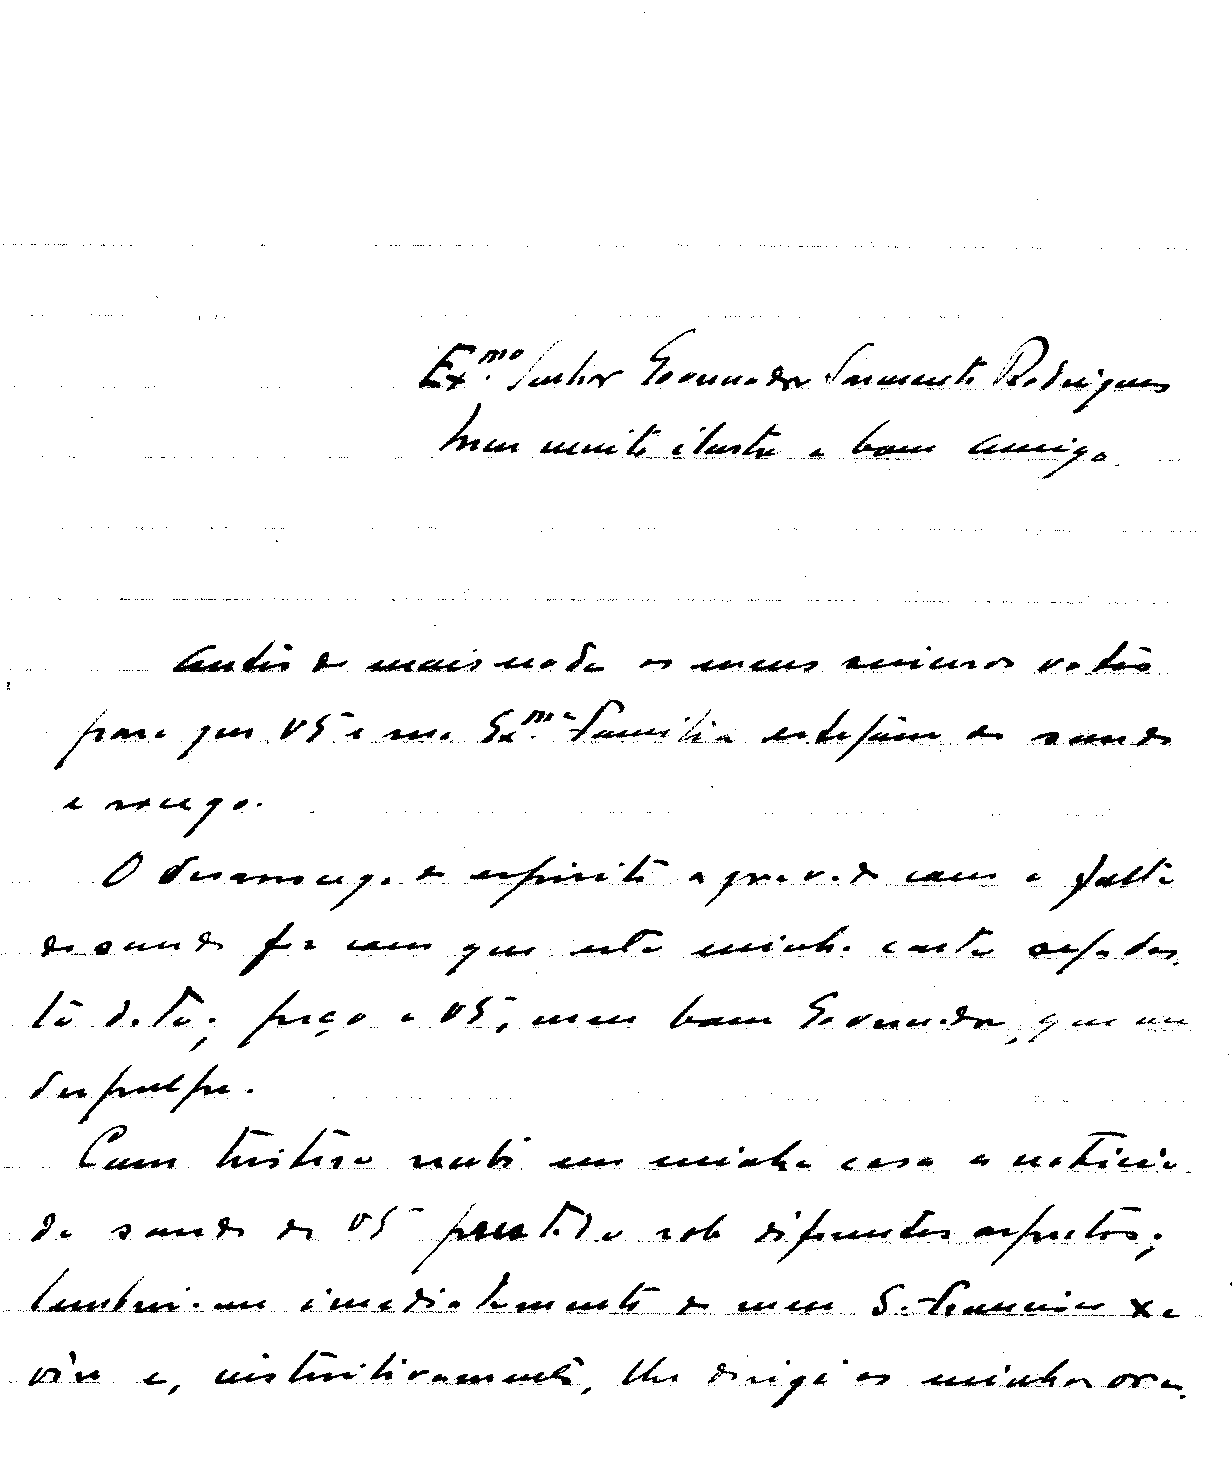 Ex.mo Senhor Governador Sarmento Rodrigues
Meu muito ilustre e bom amigo.
Antes de mais nada os meus sinceros votos
para que VS e sua Ex.ma Familia estejam de saude
e socego.
O desassocego de espirito agravado com a falta
de saude fez com que esta minha carta seja des
ta data; peço a VS, meu bom Governador, que me
desculpe.
Com tristesa recebi em minha casa a noticia
da saude de VS sob diferentes aspectos;
lembrei-me imediatamente do meu S. Francisco Xa
vier e, instintivamente, lhe dirigi as minhas ora